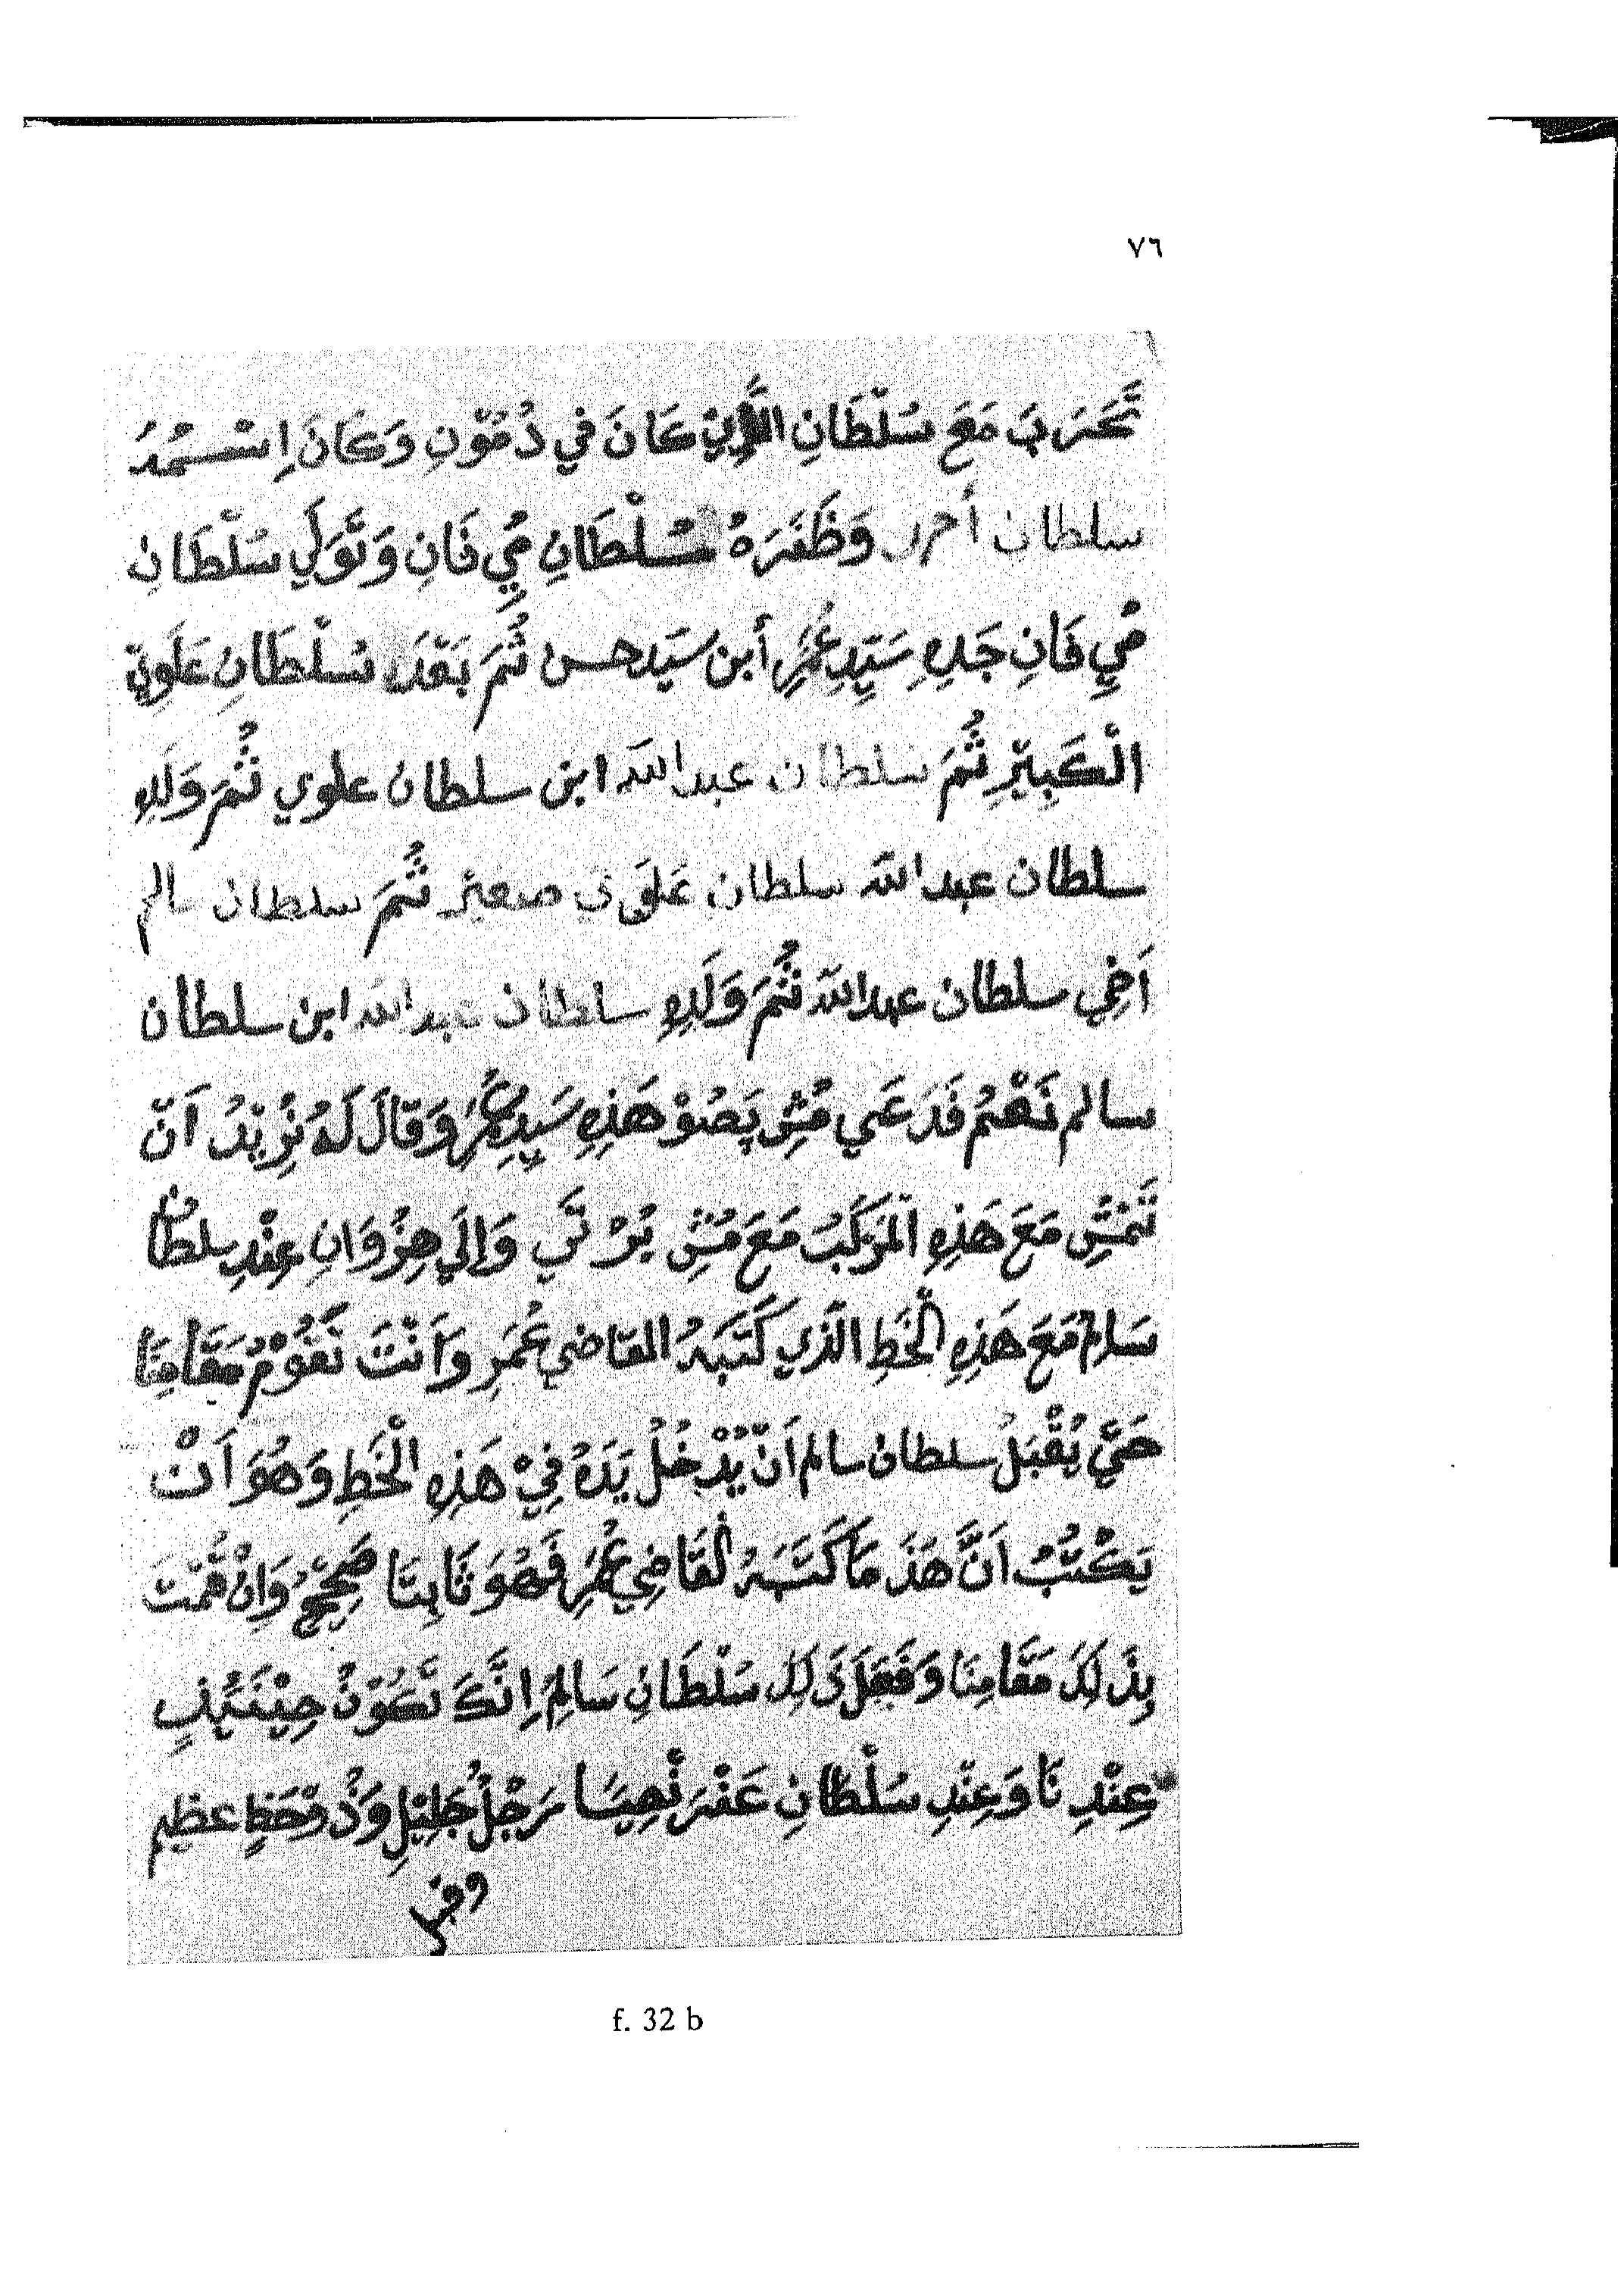 ٧٦
تَحَرَبَ مَعَ سُلْطَانِ الَّذِيْ كَانَ فِي دُمُوْنِ وَكَانَ اِسْمُهُ
سلطان أحمد وَظَفَرَهُ سُلْطَانِ مُيِ فَانِ وَتَوَلَي سُلْطَانِ
مُيِ فَانِ جَدِهِ سَيِّدِ عُمَرِ أبن سَيّد حسن ثُمَّ بَعْدَ سُلْطَانِ عَلَوِيّ
الْكَبِيْرِ ثُمَّ سلطان عبد الله ابن سلطان علوي ثُمَّ وَلَدِهِ
سلطان عبد الله سلطان عَلَوِي صغير ثُمَّ سلطان سالم
اَخِي سلطان عبد الله ثُمَّ وَلَدِهِ سلطان عبد الله ابن سلطان
سالم نَعَمْ فَدَعَى مُشِ پَصُوْ هَذِهِ سَيِدِ عُمَرِ وَقَالَ لَهُ نُرِيْدُ اَنّ
تَمْشِ مَعَ هَذِهِ الْمَرْكَبُ مَعَ مُشِ بُرْ تَي وَإِلَي هِزُوَانِ عِنْدِ سلطان
سَالِم مَعَ هَذِهِ الْخَطِ الَّذِي كَتَبَهُ القاضي عُمَرِ وَاَنْتَ تَقُوْمُ مَقَامِنَا
حَتّيِ يُقْبَلُ سلطان سالم اَنّ يُدْخُلُ يَدَهُ فِيْ هَذِهِ الْخَطِ وَهُوَ اَنْ
يَكْتُبُ اَنَّ هَذَ مَا كَتَبَهُ الْقَاضِي عُمَرِ فَهُوَ ثَابِتَا صَحِيْحٌ وَاِنْ قُمْتَ
بِذَلِكَ مَقَامِنَا وَفَعَلَ ذَلِكَ سُلْطَانِ سَالِم اِنَّكَ تَكُوْنُ حِيْنَئِذٍ
عِنْدِ نَا وَعِنْدِ سُلْطَانِ عَفْرَنْصِيَا رَجُلُ جَلِيْلِ وَذُوْحَظٍ عظيم
وفر
f. 32 b